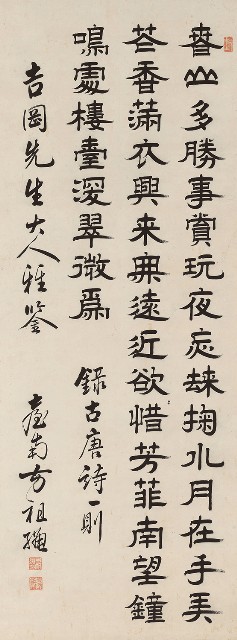 春山多勝事賞玩夜忘歸掬水月在手弄
花香滿衣興来無遠近欲惜芳菲南望鐘
鳴處樓臺深翠微爲
錄古唐詩一則
吉岡先生大人雅鑒
臺南方祖